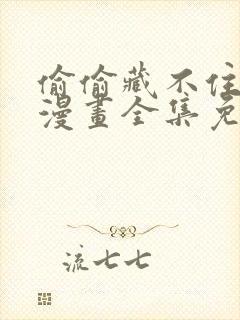 偷偷藏不住
漫畫全集免
流七七